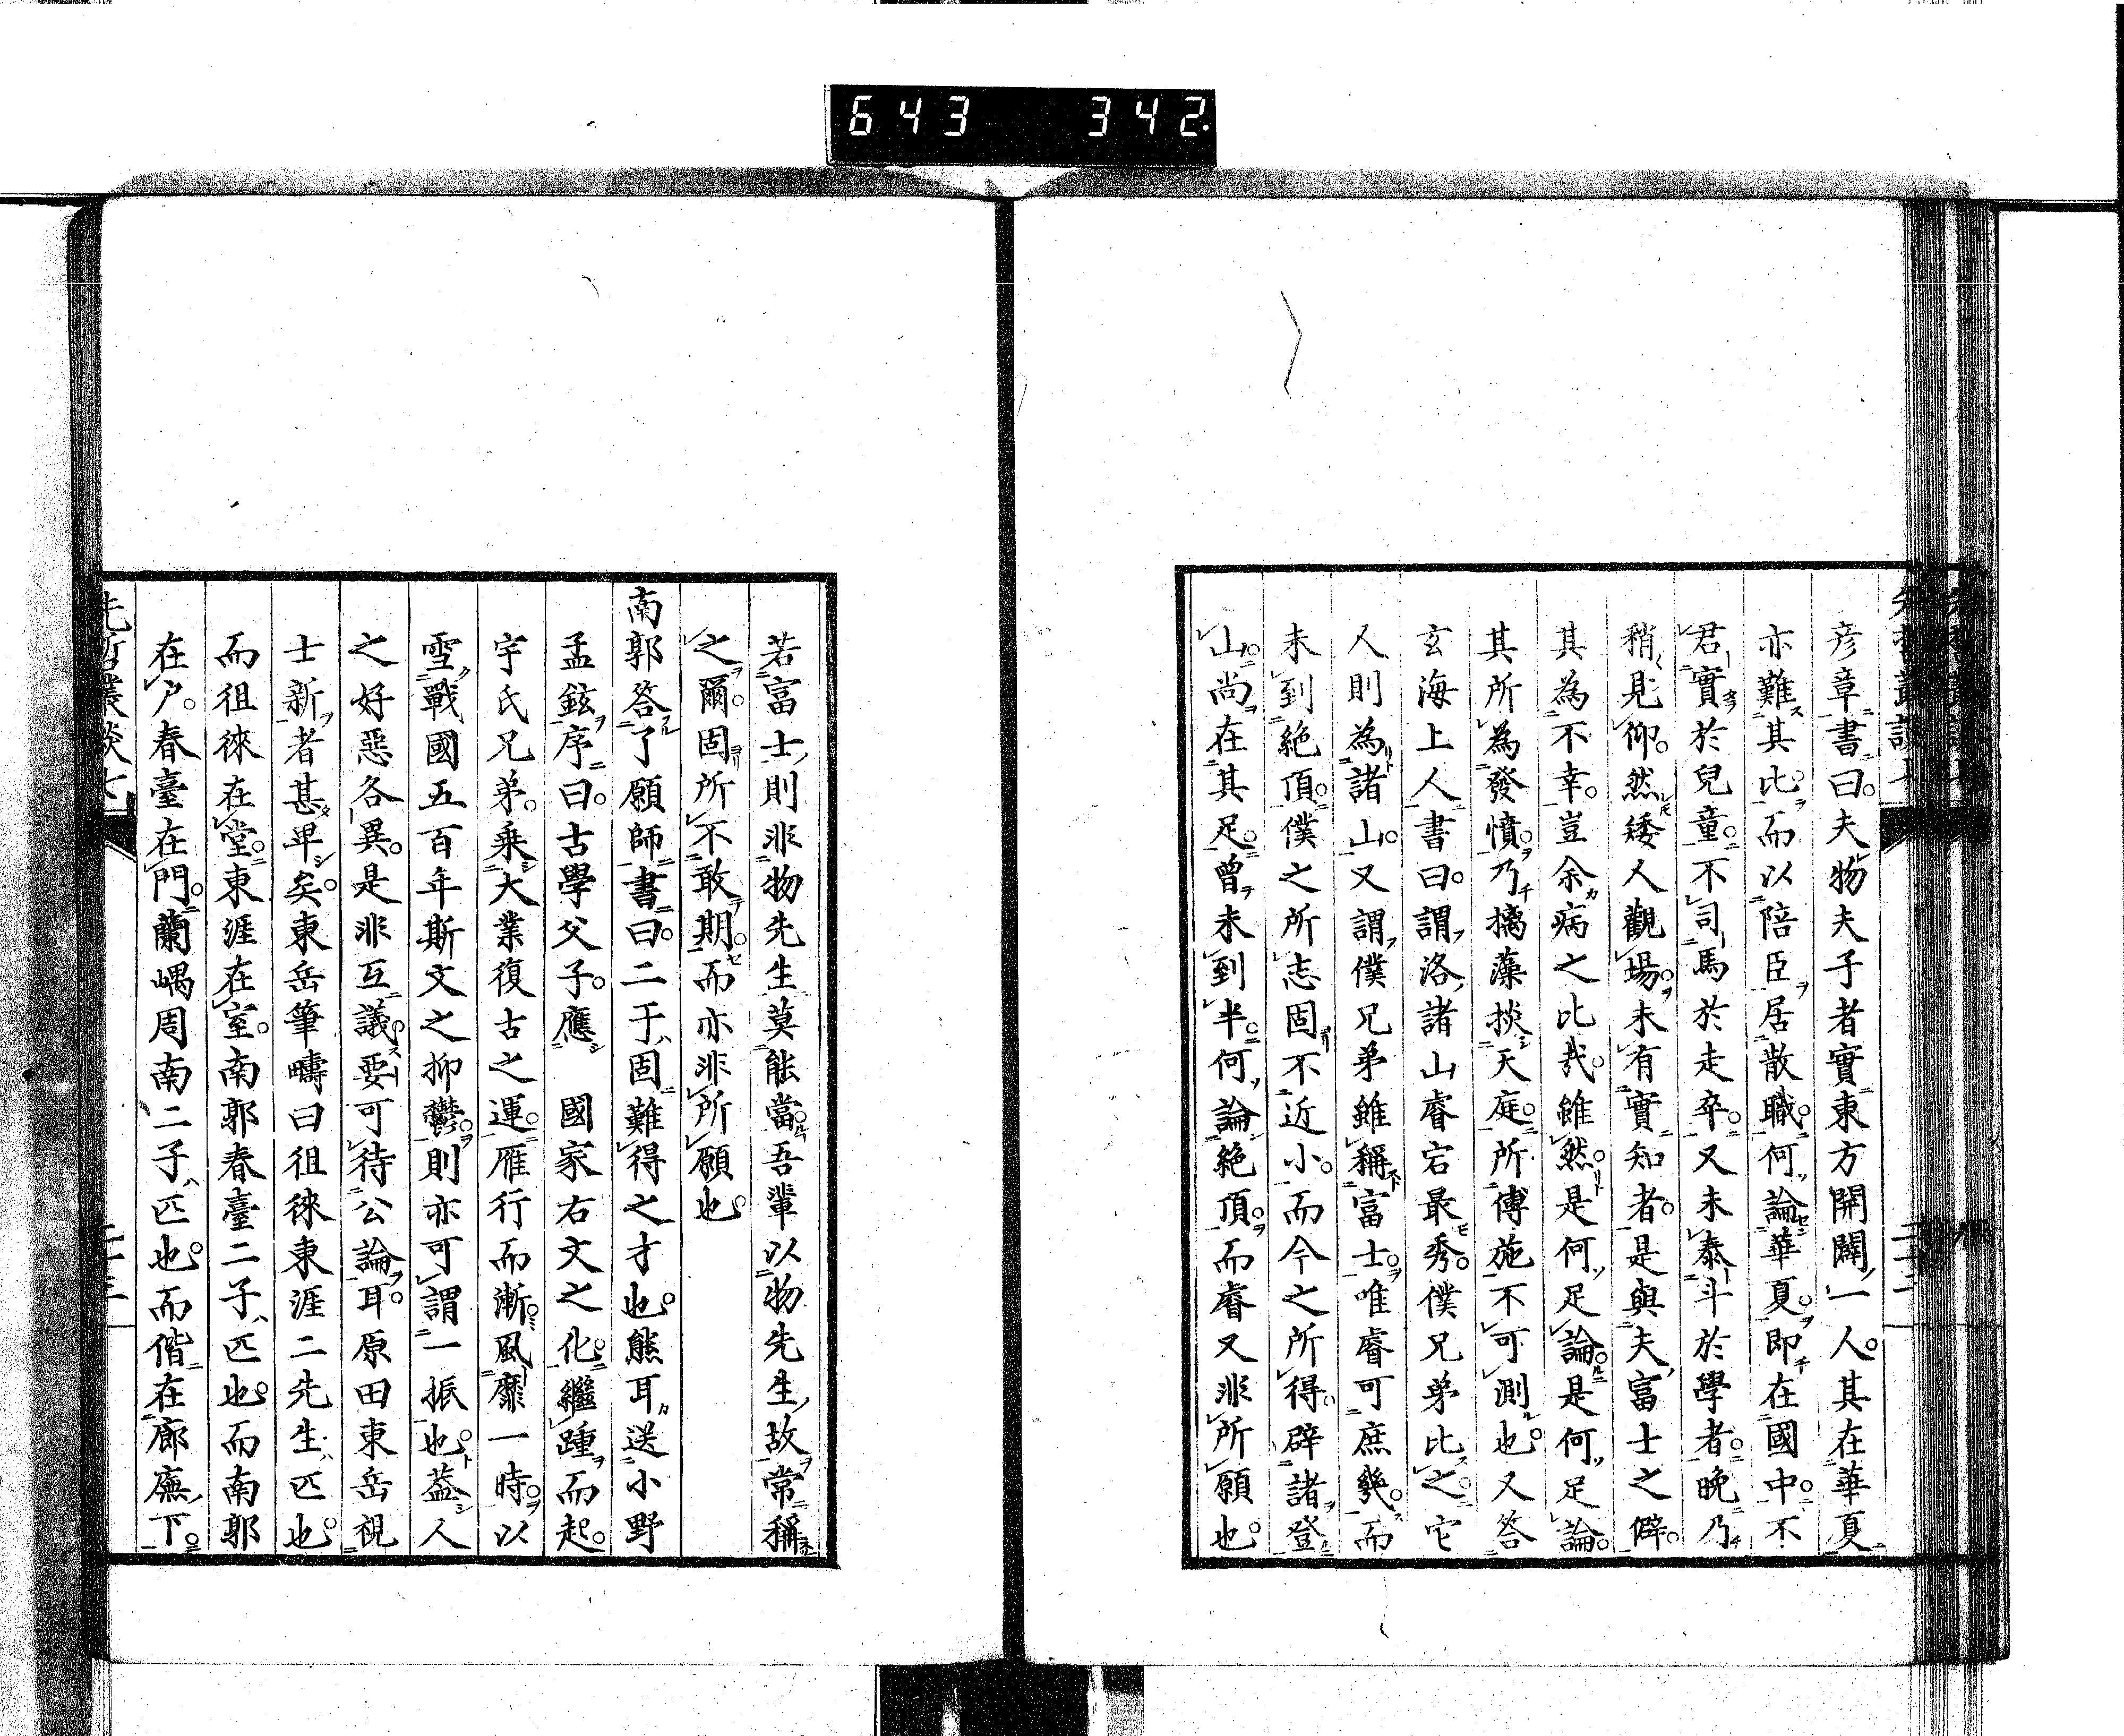 643 342
彦章書曰。夫物夫子者實東方開闢一人。其在華夏
亦難其比。而以陪臣居散職。何論華夏。即在國中。不
君實於兒童。不司馬於走卒。又未泰斗於學者。晩乃
稍見仰。然矮人觀場。未有實知者。是與夫富士之僻。
其為不幸。豈余病之比哉。雖然是何足論。是何足論。
其所為發憤。乃摛藻掞天庭。所傅施不可測也。又答
玄海上人書曰。謂洛諸山睿宕最秀。僕兄弟比之。它
人則為諸山。又謂僕兄弟雖稱富士。唯睿可庶幾。而
未到絶頂。僕之所志固不近小。而今之所得。辟諸登
山。尚在其足。曾未到半。何論絶頂。而睿又非所願也。
若富士則非物先生莫能當。吾輩以物先生故常稱
之爾。固所不敢期。而亦非所願也。
南郭答了願師書曰。二于固難得之才也。熊耳送小野
孟鉉序曰。古學父子。應 國家右文之化。繼踵而起。
宇氏兄弟。乘大業復古之運。雁行而漸。風靡一時。以
雪戰國五百年斯文之抑鬱。則亦可謂一振也。葢人
之好惡各異。是非互議。要可待公論耳。原田東岳視
士新者甚卑矣。東岳筆疇曰徂徠東涯二先生匹也。
而徂徠在堂。東涯在室。南郭春臺二子匹也。而南郭
在戸。春臺在門。蘭嵎周南二子匹也。而偕在廊廡下。
先哲叢談七